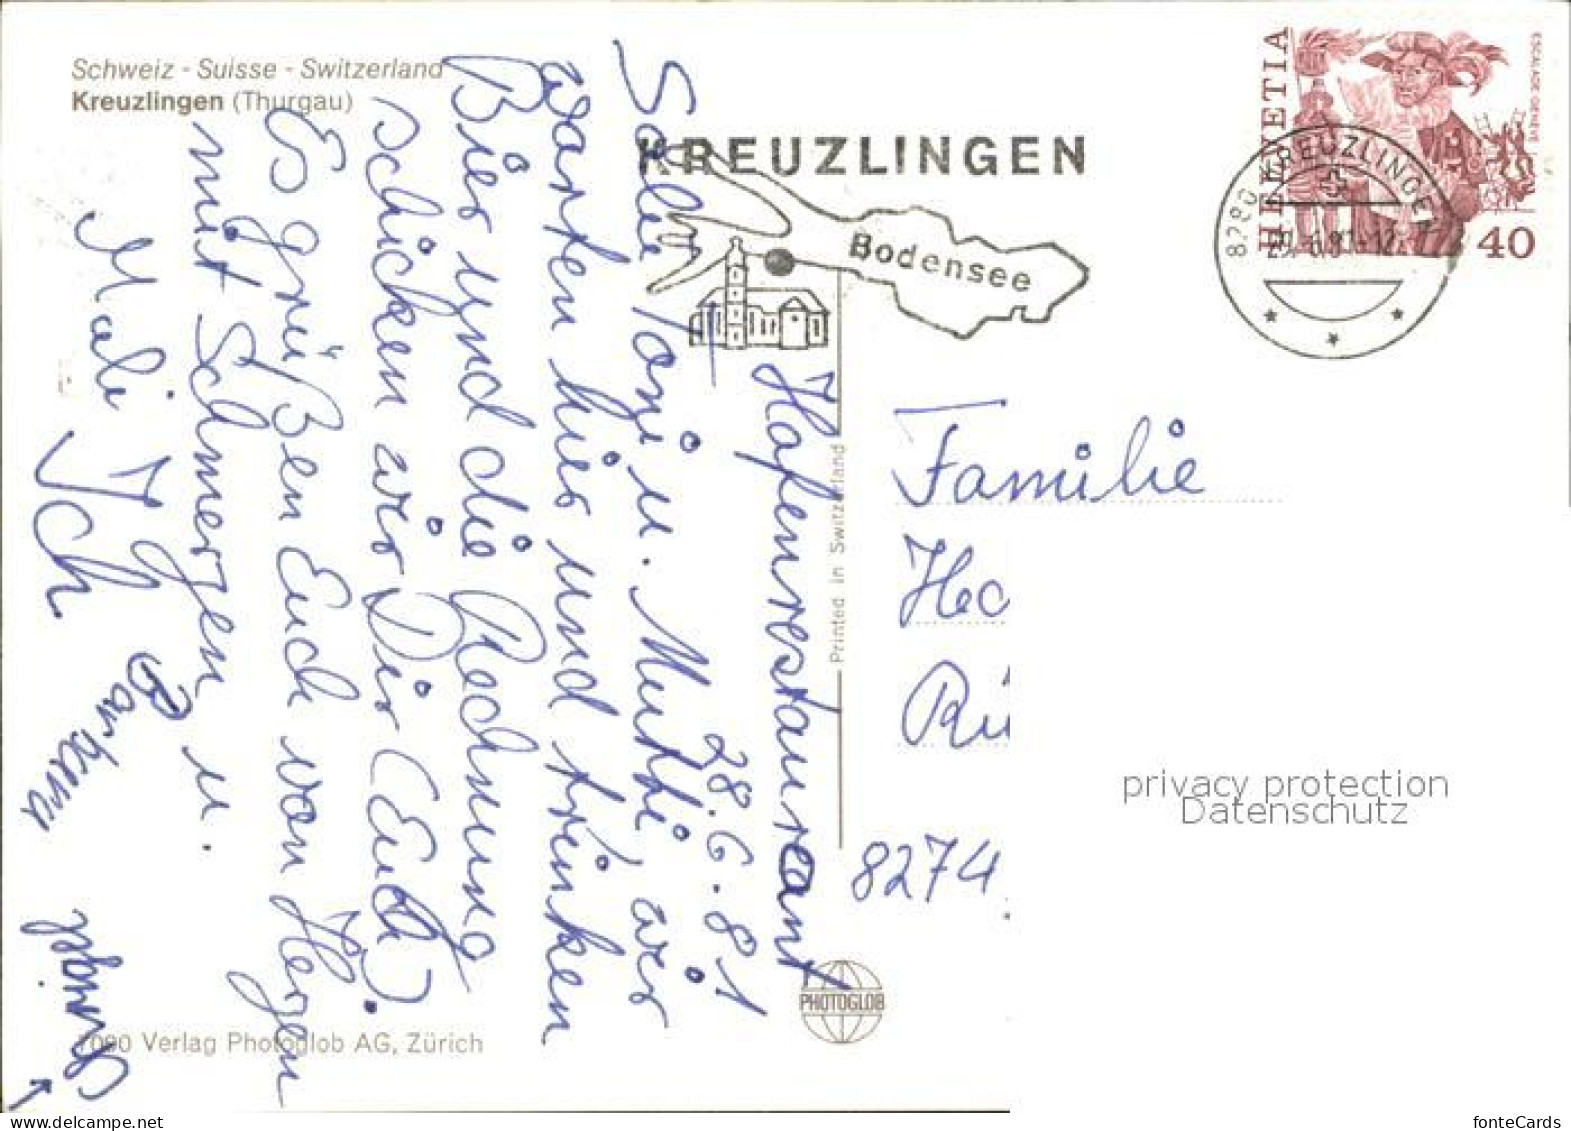 Schweiz - Suisse - Switzerland
Kreuzlingen (Thurgau)
KREUZLINGEN
Bodensee
HELVETIA
ESCALADE GENEVE
40
8280 KREUZLINGEN
Hafenrestaurant
28.6.81
Salü Toni u. Muthi, wir
warten hier und trinken
Bier und die Rechnung
schicken wir Dir (Euch)
Es grüßen Euch von Herzen
mit Schmerzen u.
Mali
ICH
Barbara
Printed in Switzerland
Familie
8274
PHOTOGLOB
7090 Verlag Photoglob AG, Zürich
privacy protection
Datenschutz
www.delcampe.net
fonteCards